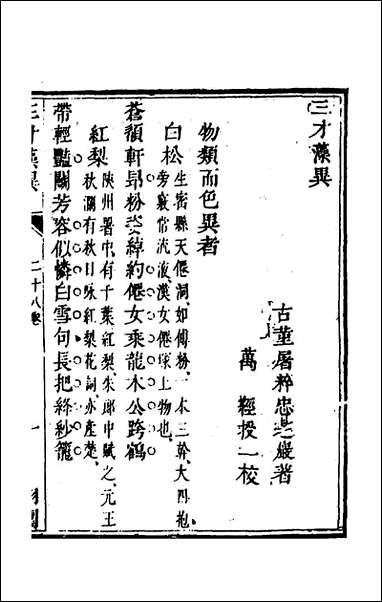 三才藻異
古董屠粹忠芝巖著
萬經授一校
物類而色異者
白松生密縣天僊洞如傅粉一本三幹大四抱
旁竅常流液漢女僊塚上物也
蒼顏軒昻粉姿綽約僊女乘龍木公跨鶴
紅梨陝州署中有千葉紅梨朱郎中賦之元王
秋澗有秋日咏紅梨花詞亦產楚
帶輕豔關芳容似憐白雪句長把絳紗籠
三才藻異
二十八卷
一